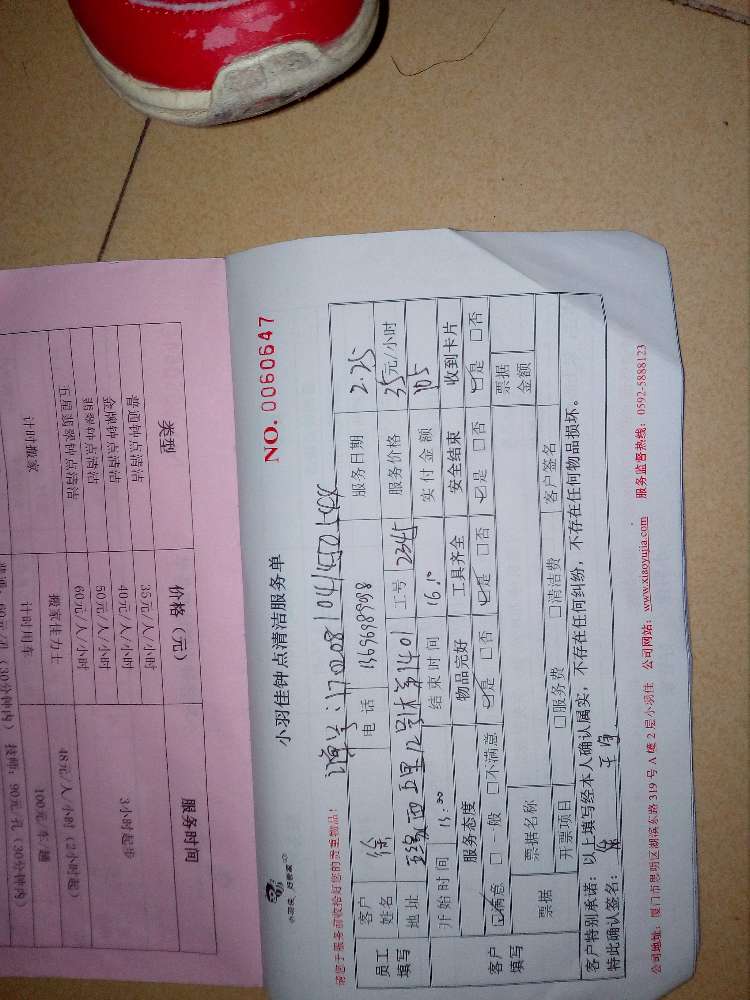 小羽佳 好管家
小羽佳钟点清洁服务单
NO. 0060647
请您于服务前收拾好您的贵重物品!
员工填写
客户姓名 徐 电话 服务日期 2.25
地址 工号 2345 服务价格 35元/小时
开始时间 13:00 结束时间 16:10 实付金额 105
客户填写
服务态度 物品完好 工具齐全 安全结束 收到卡片
☑满意 □一般 □不满意 ☑是 □否 ☑是 □否 ☑是 □否 ☑是 □否
票据 票据名称 票据金额
开票项目 □服务费 □清洁费 客户签名
客户特别承诺:以上填写经本人确认属实,不存在任何纠纷,不存在任何物品损坏。
特此确认签名:
公司地址:厦门市思明区湖滨东路 319 号 A 幢 2 层小羽佳 公司网站:www.xiaoyujia.com 服务监督热线:0592-5888123
类型 价格(元) 服务时间
普通钟点清洁 35元/人/小时 3小时起步
金牌钟点清洁 40元/人/小时
50元/人/小时
60元/人/小时
计时搬家 搬家佳力士 48元/人/小时(2小时起)
计时用车 100元/车/趟